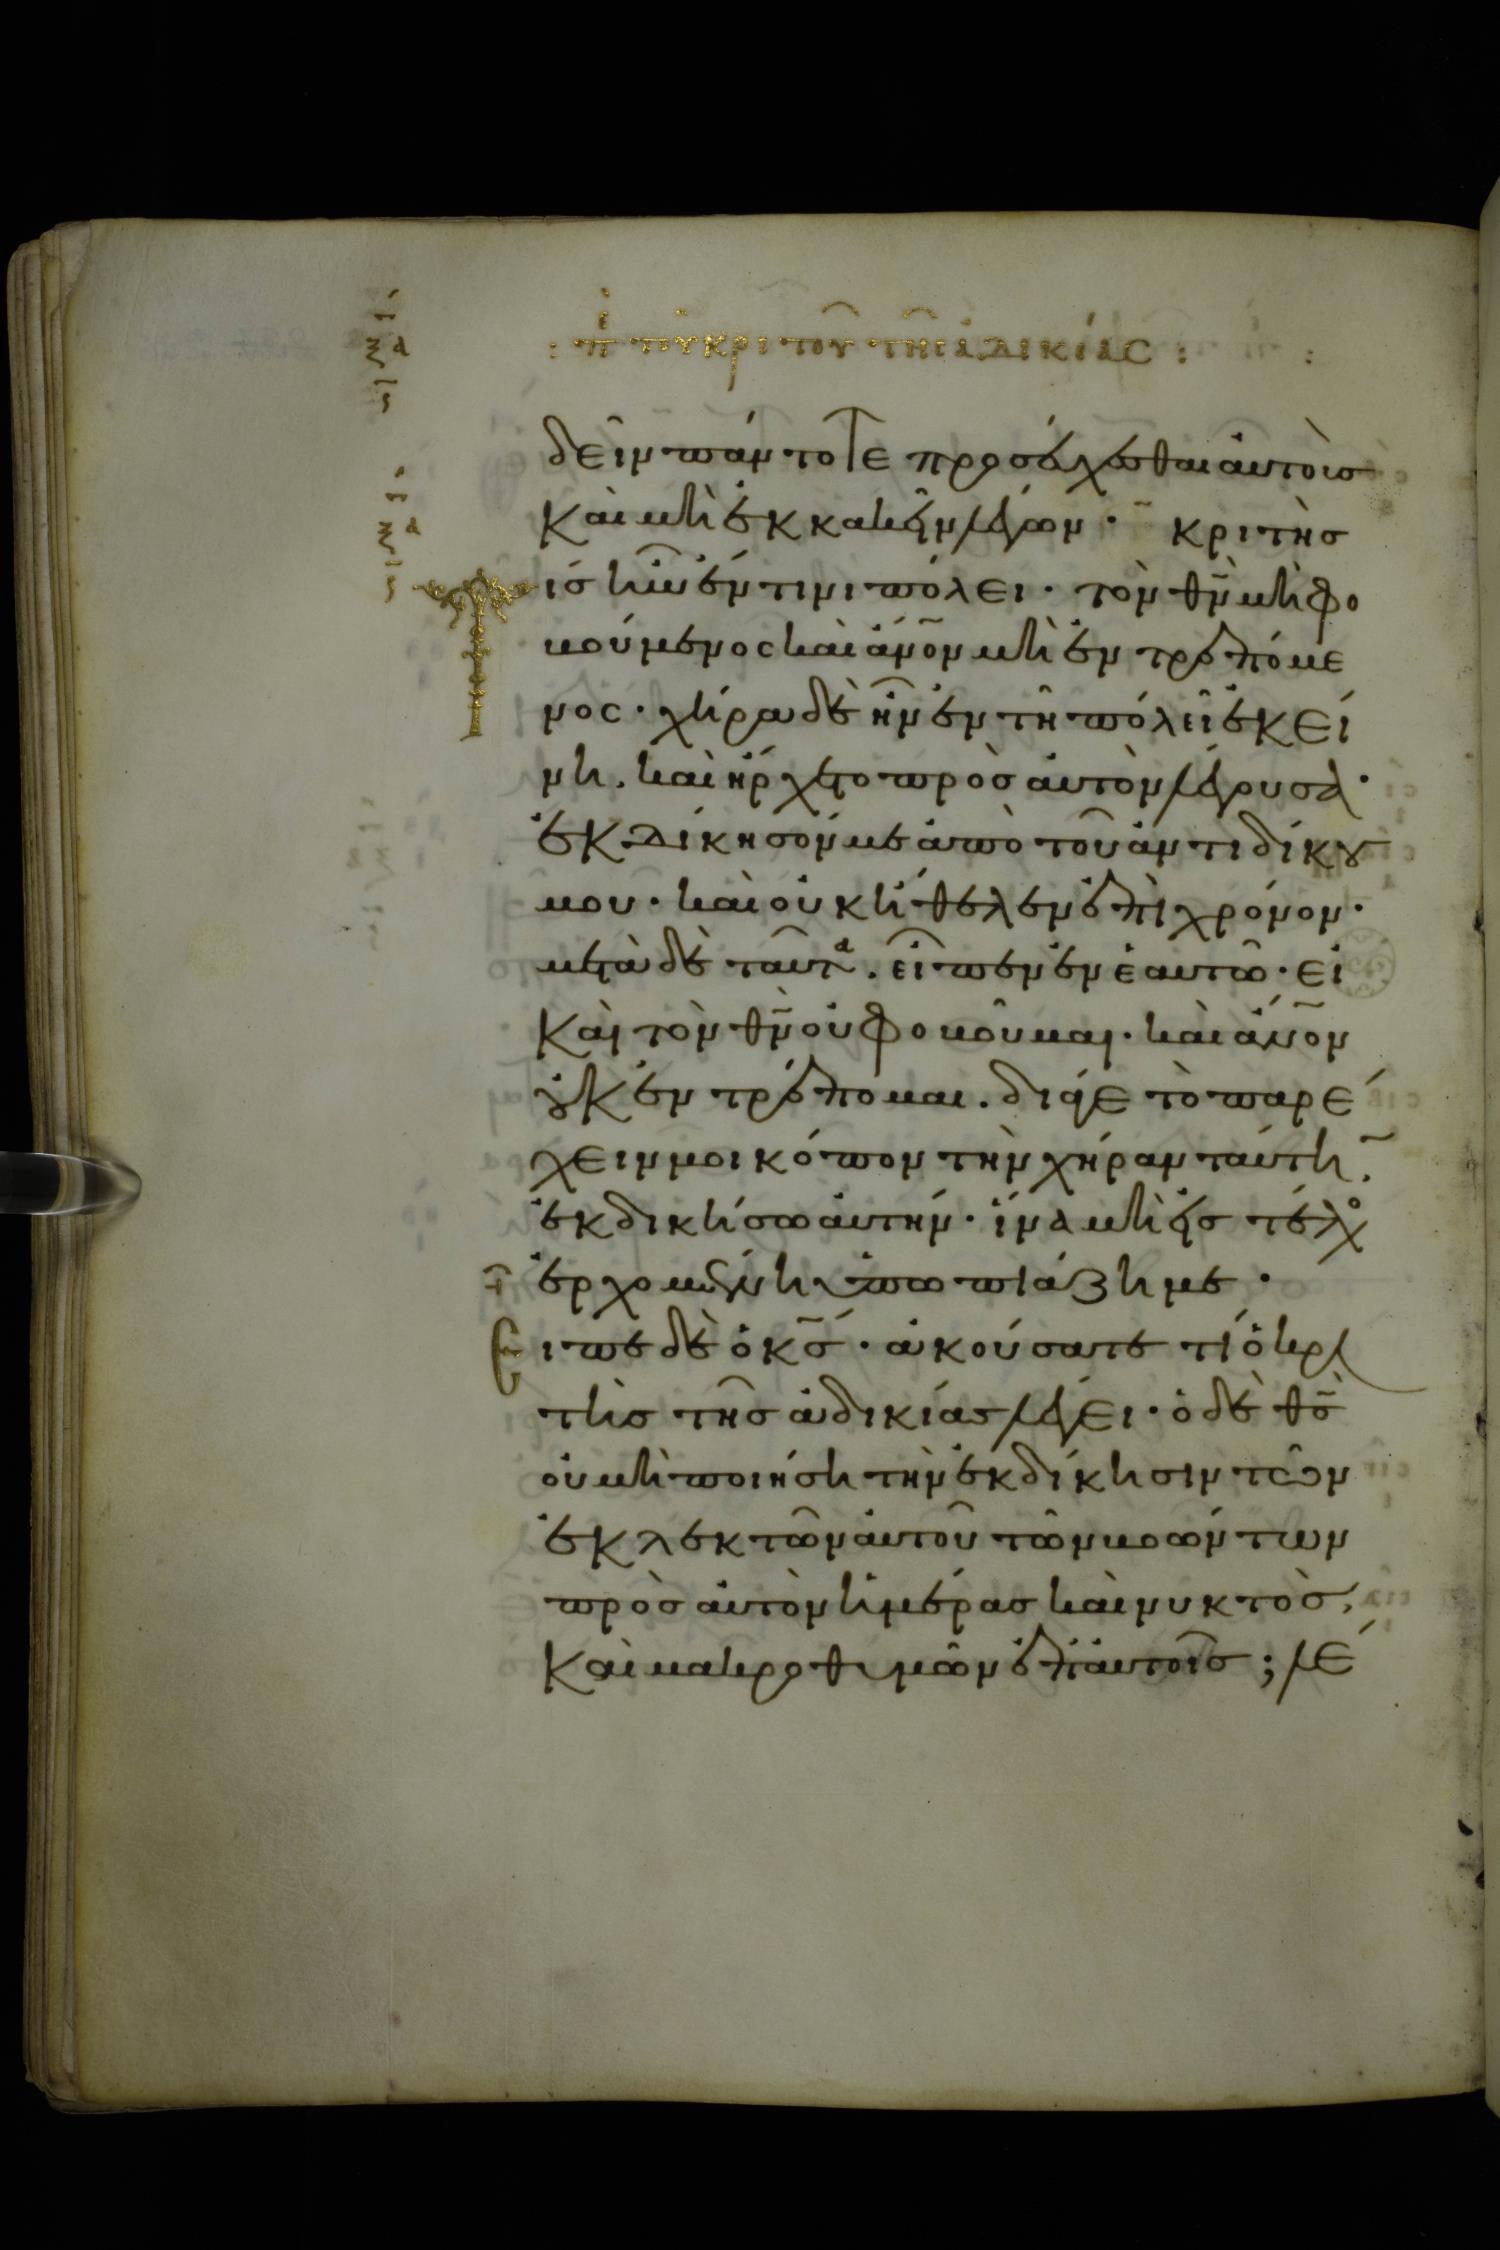 : πι τοῦ κριτοῦ τῆς ἀδικίας :
δεῖν πάντοτε προσεύχεσθαι αὐτοὺσ
καὶ μὴ ἐκκακεῖν λέγων · κριτὴσ
τισ ἦν ἔν τινι πόλει · τὸν θ̅ν̅ μὴ φο
βούμενος καὶ ἄν̅ο̅ν μὴ ἐντρεπόμε
νος · χήρα δὲ ἦν ἐν τῆ πόλει ἐκεί
νη . καὶ ἤρχετο πρὸσ αὐτὸν λέγουσα ·
ἐκδίκησόν με ἀπὸ τοῦ ἀντιδίκου
μου · καὶ οὐκ ἤθελεν ἐπὶ χρόνον ·
μετὰ δὲ ταῦτα . εἶπεν ἐν ἑαυτῶ · εἰ
καὶ τὸν θ̅ν̅ οὐ φοβοῦμαι · καὶ ἄν̅ο̅ν
οὐκ ἐντρέπομαι . διά γε τὸ παρέ
χειν μοι κόπον τὴν χήραν ταύτη̅ .
ἐκδικήσω αὐτήν · ἵνα μὴ εἰσ τέλος
ἐρχομένη ὑπωπιάζη με ·
Εἶπε δὲ ὁ κ̅σ̅ · ἀκούσατε τί ὁ κρι
τὴσ τῆσ ἀδικίασ λέγει · ὁ δὲ θ̅σ̅
οὐ μὴ ποιήση τὴν ἐκδίκησιν τῶν
ἐκλεκτῶν αὐτοῦ τῶν βοώντων
πρὸσ αὐτὸν ἡμέρασ καὶ νυκτὸσ ,
καὶ μακροθυμῶν ἐπ' αὐτοῖσ ; λέ